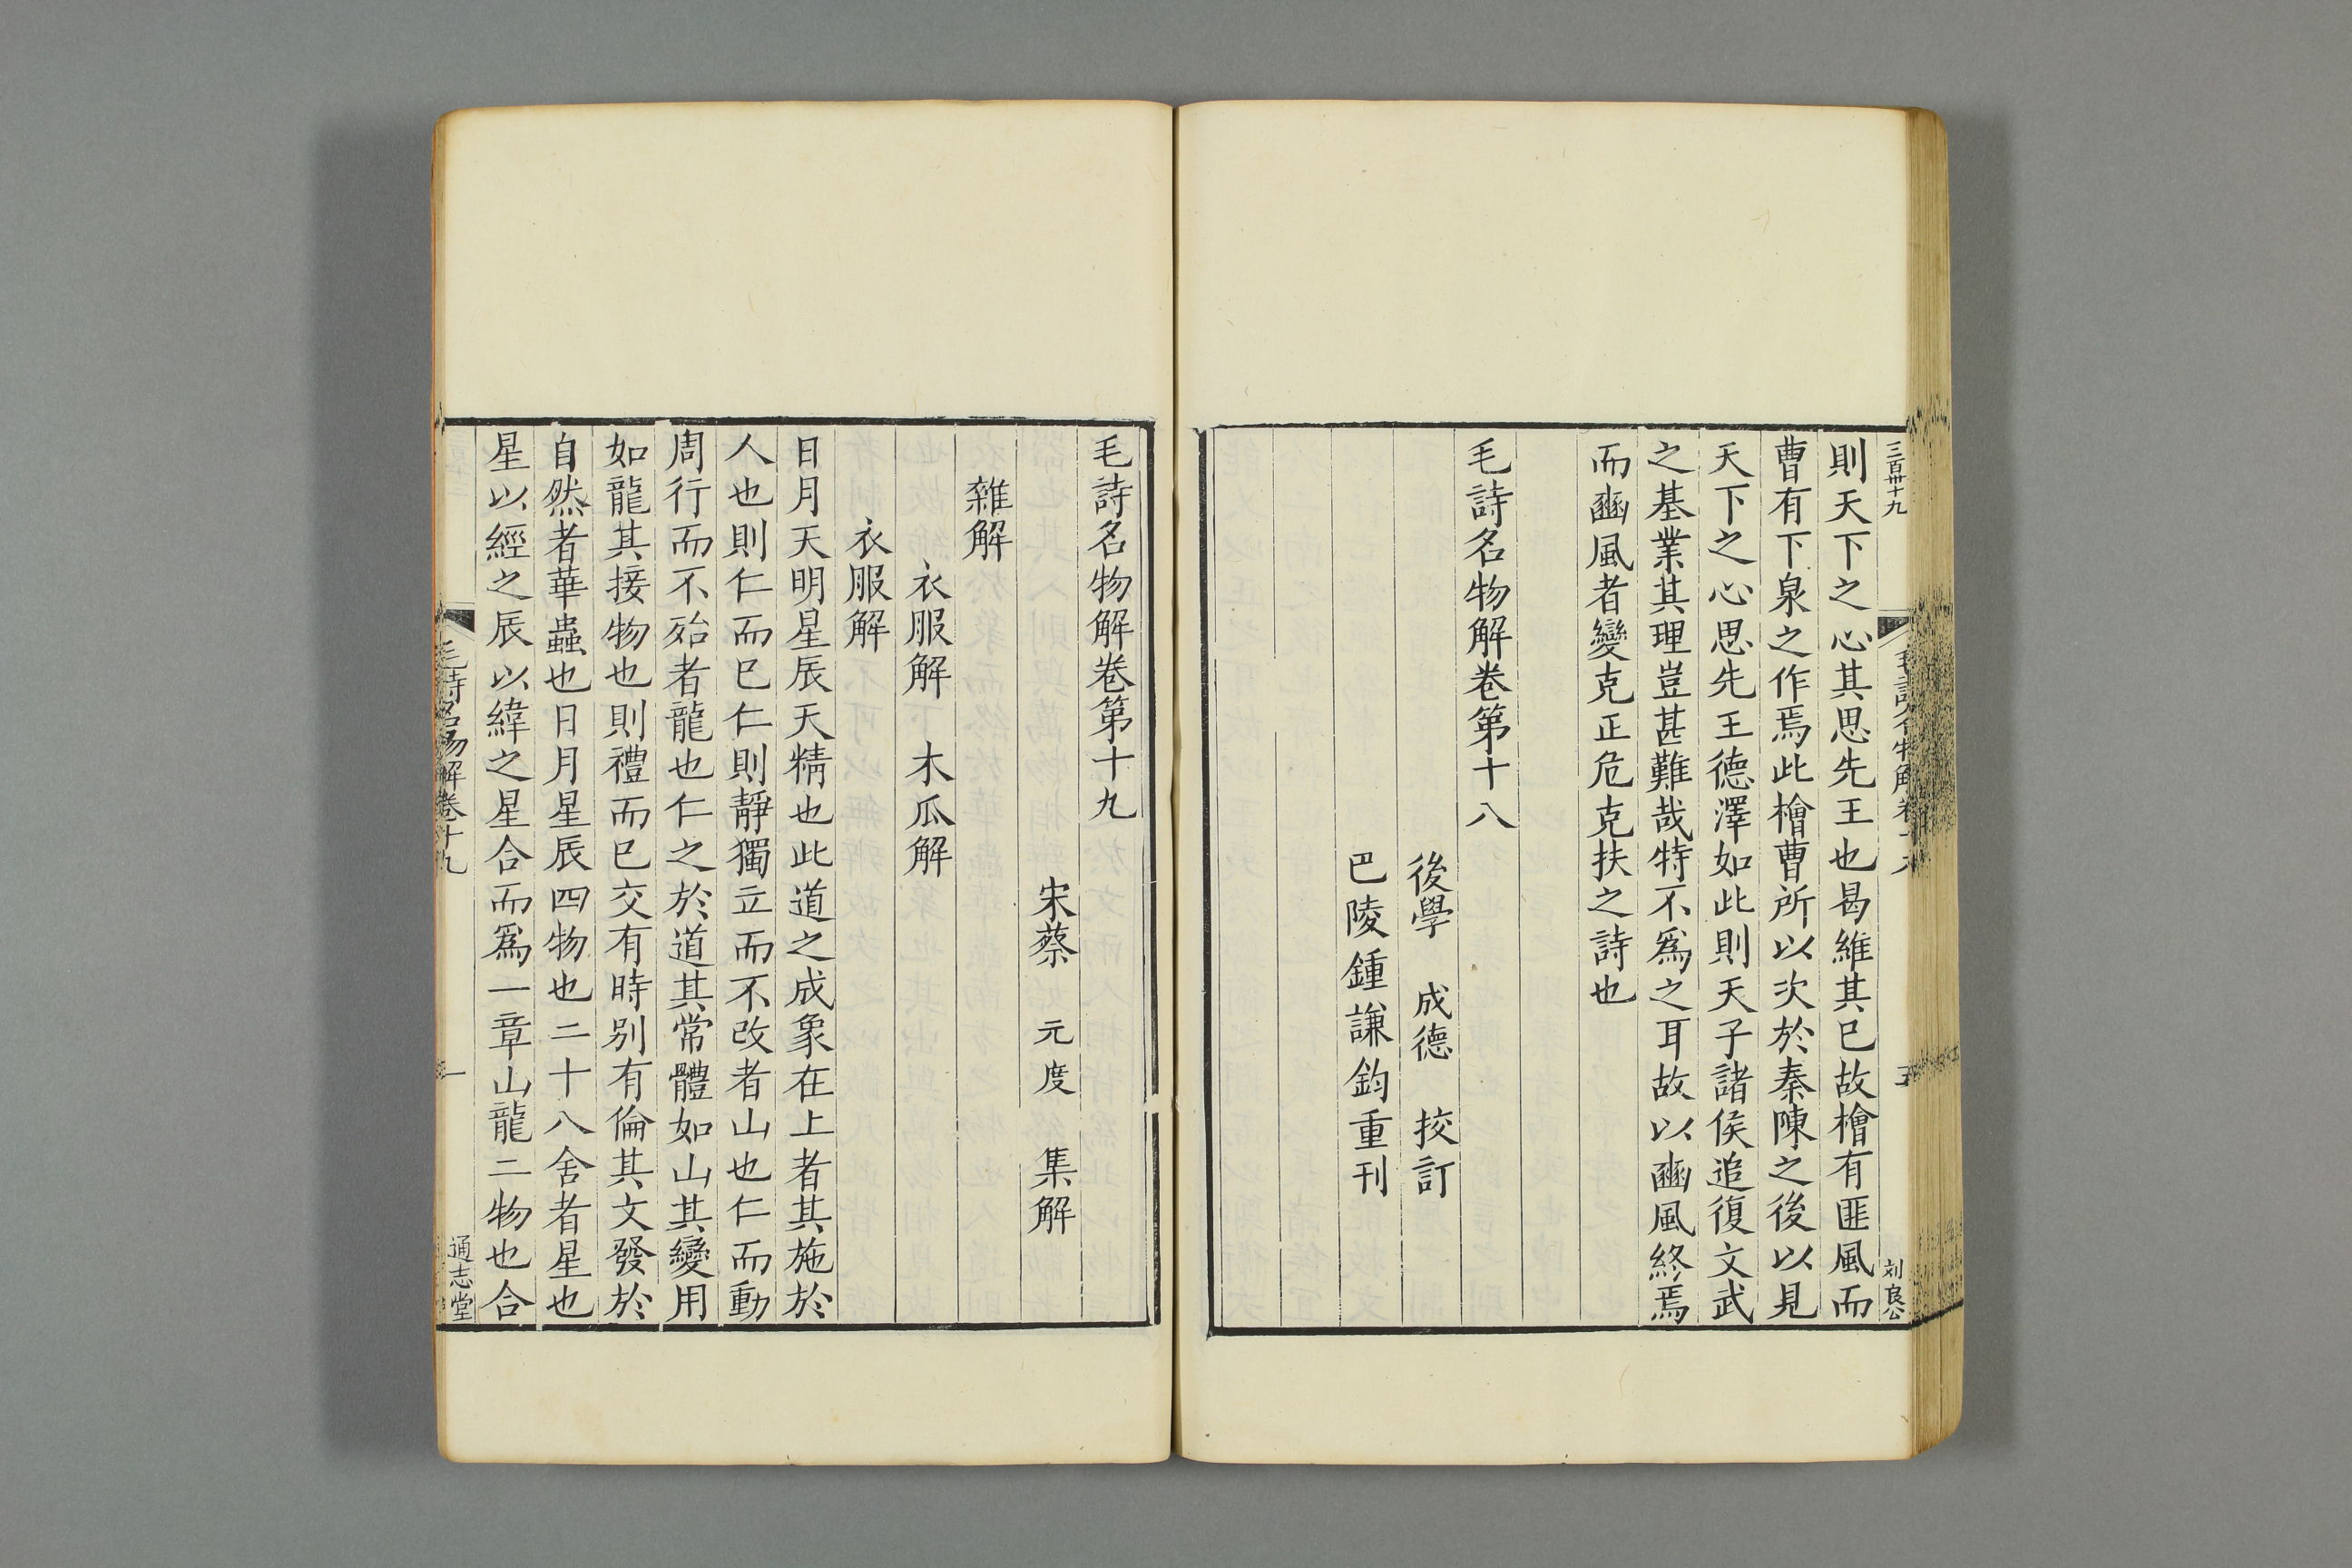 三百卌十九
則天下之心其思先王也曷維其已故檜有匪風而
曹有下泉之作焉此檜曹所以次於秦陳之後以見
天下之心思先王德澤如此則天子諸侯追復文武
之基業其理豈甚難哉特不爲之耳故以豳風終焉
而豳風者變克正危克扶之詩也
毛詩名物解卷第十八
後學 成德 挍訂
巴陵鍾謙鈞重刊
刘良公
毛詩名物解卷第十九
宋蔡 元度 集解
雜解
衣服解 木瓜解
衣服解
日月天明星辰天精也此道之成象在上者其施於
人也則仁而已仁則靜獨立而不改者山也仁而動
周行而不殆者龍也仁之於道其常體如山其變用
如龍其接物也則禮而已交有時别有倫其文發於
自然者華蟲也日月星辰四物也二十八舍者星也
星以經之辰以緯之星合而爲一章山龍二物也合
毛詩名物解卷十九
一
通志堂